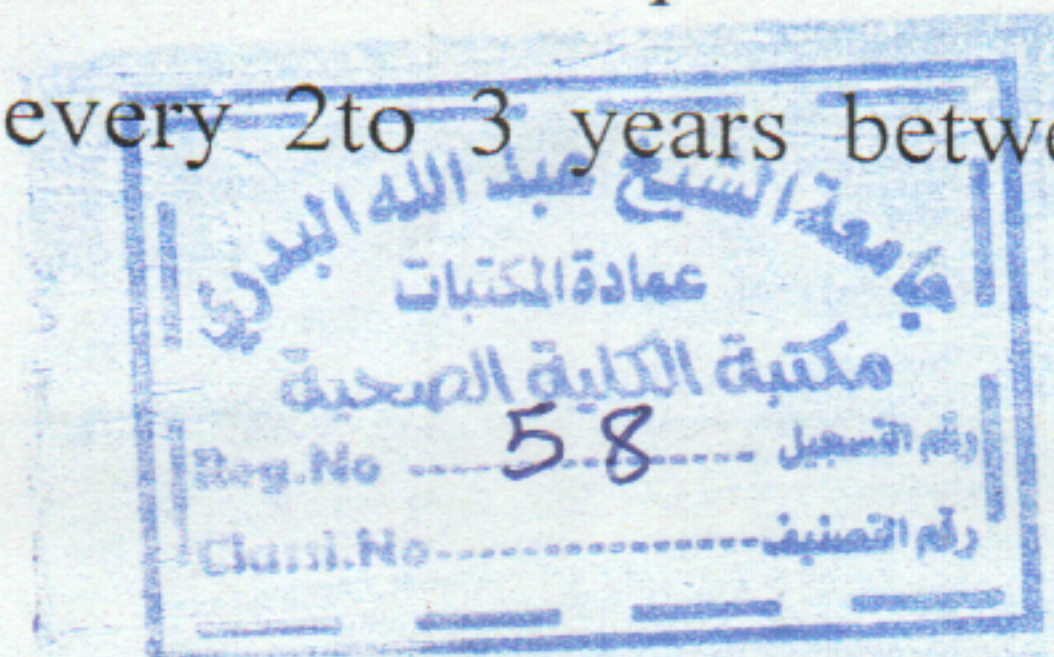 every 2to 3 years betwe
جامعة الشيخ عبد الله البدري
عمادة المكتبات
مكتبة الكلية الصحية
Reg.No ---------- 58 ---------- رقم التسجيل
Classi.No ---------- رقم التصنيف